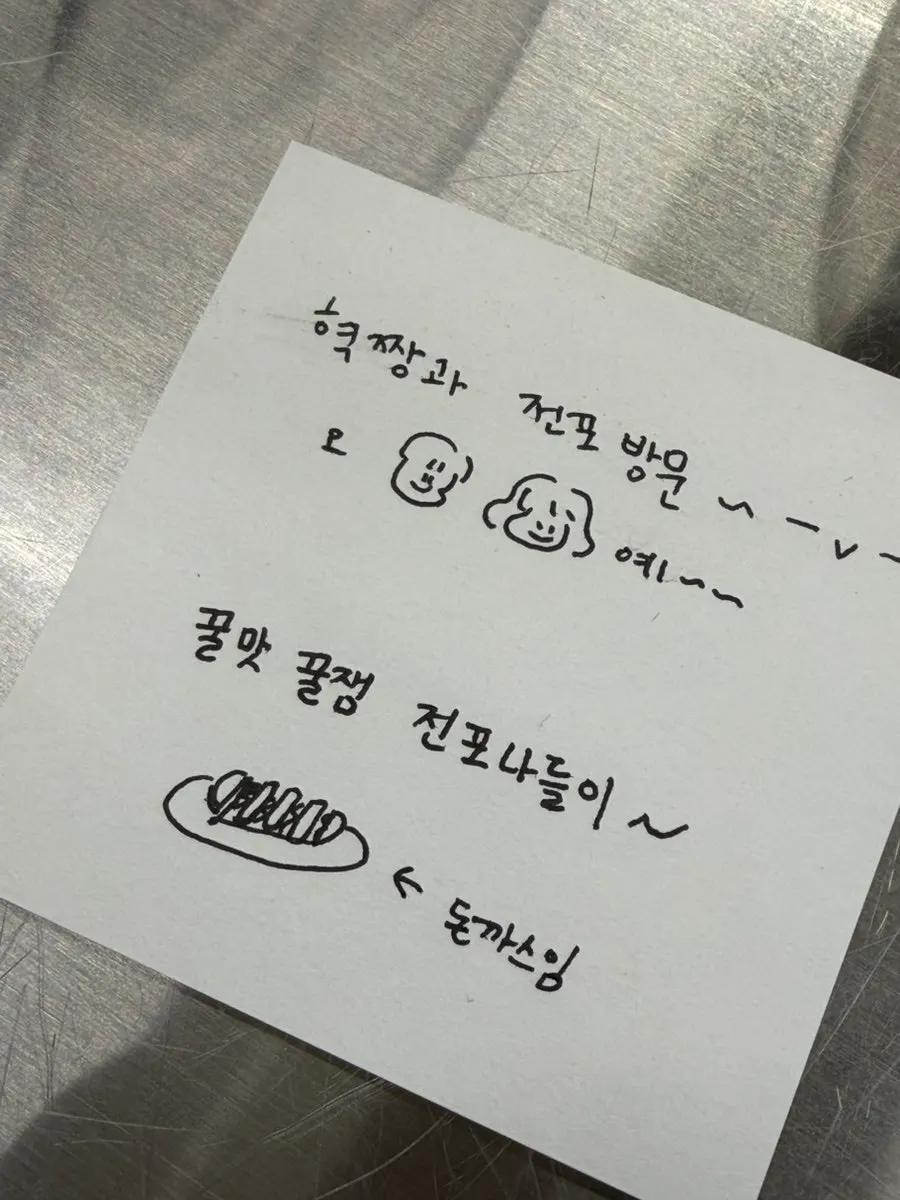 혁짱과 전포 방문 ~ - v -
오 예~~
꿀맛 꿀잼 전포나들이~
← 돈까스임